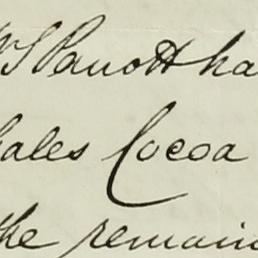 Parrott ha
ales Cocoa
the remain